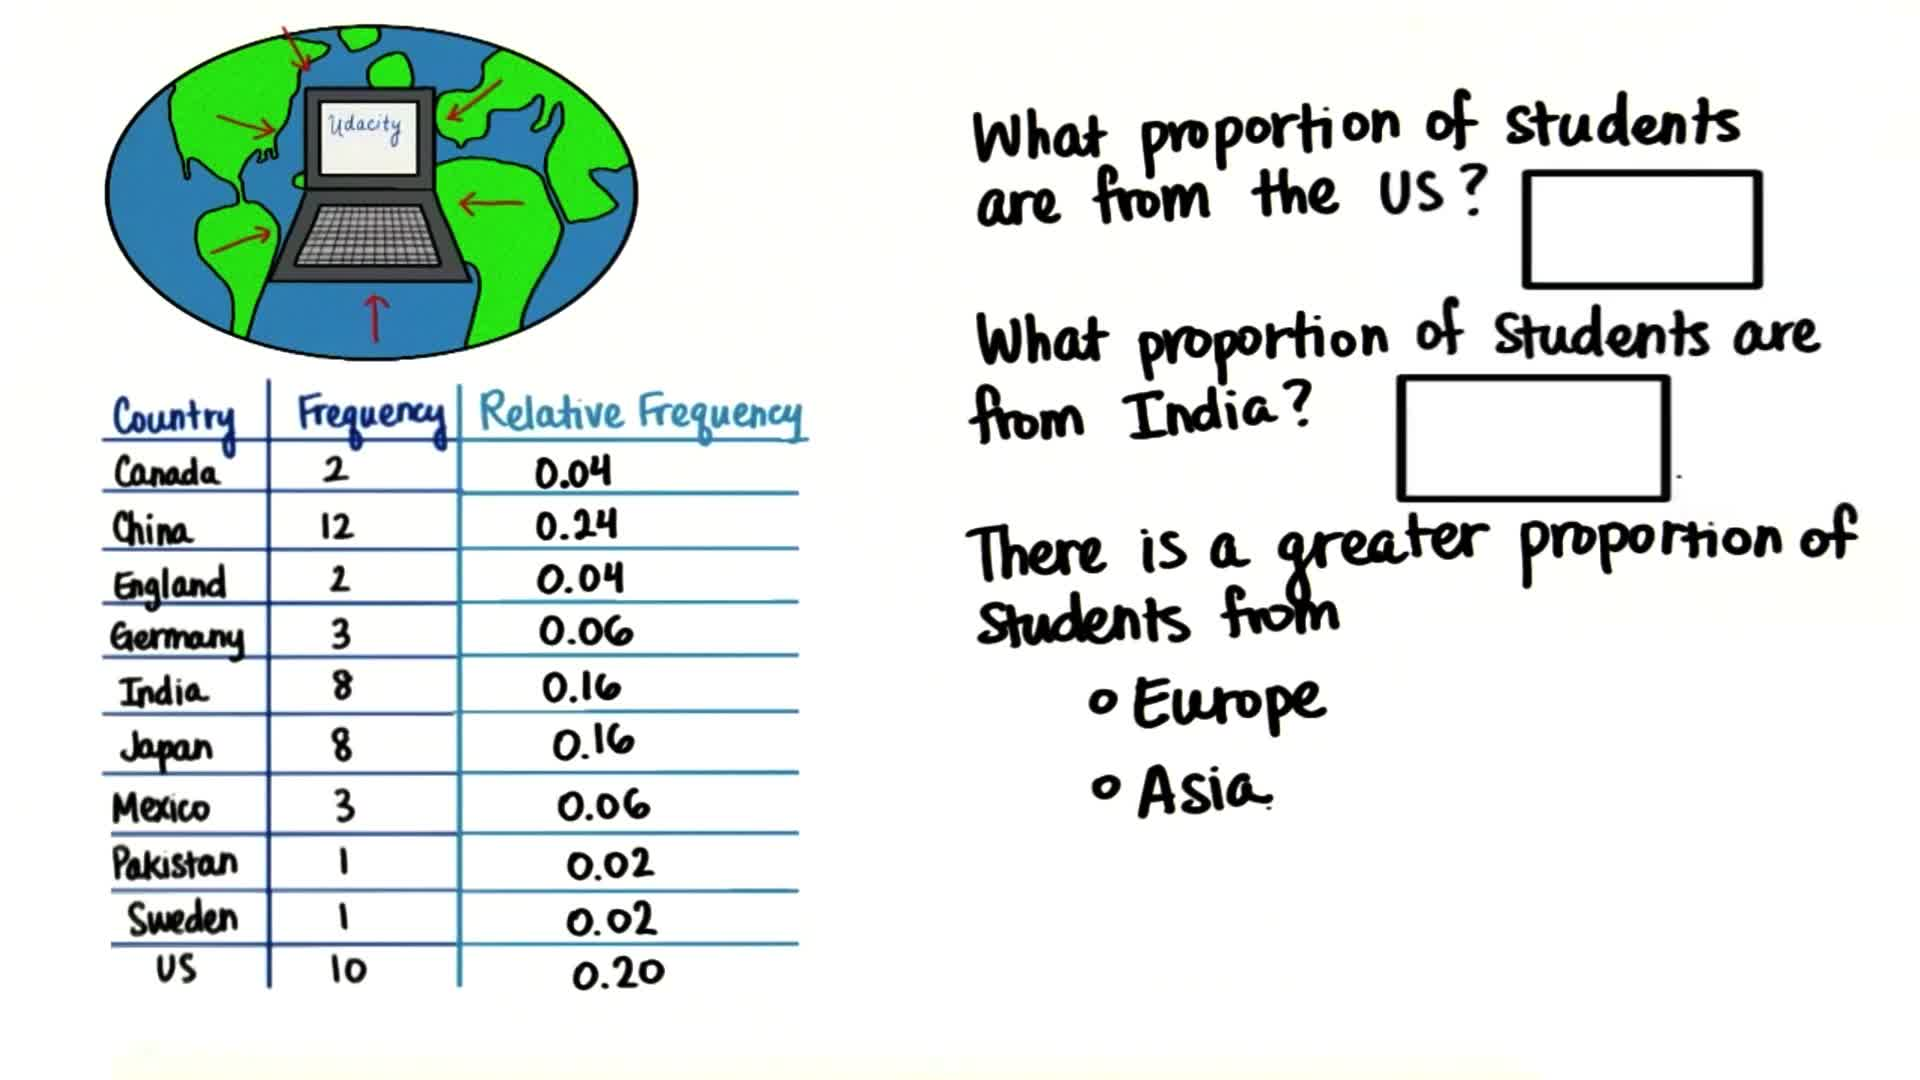 Udacity
Country Frequency Relative Frequency
Canada 2 0.04
China 12 0.24
England 2 0.04
Germany 3 0.06
India 8 0.16
Japan 8 0.16
Mexico 3 0.06
Pakistan 1 0.02
Sweden 1 0.02
US 10 0.20
What proportion of students
are from the US?
What proportion of students are
from India?
There is a greater proportion of
students from
Europe
Asia